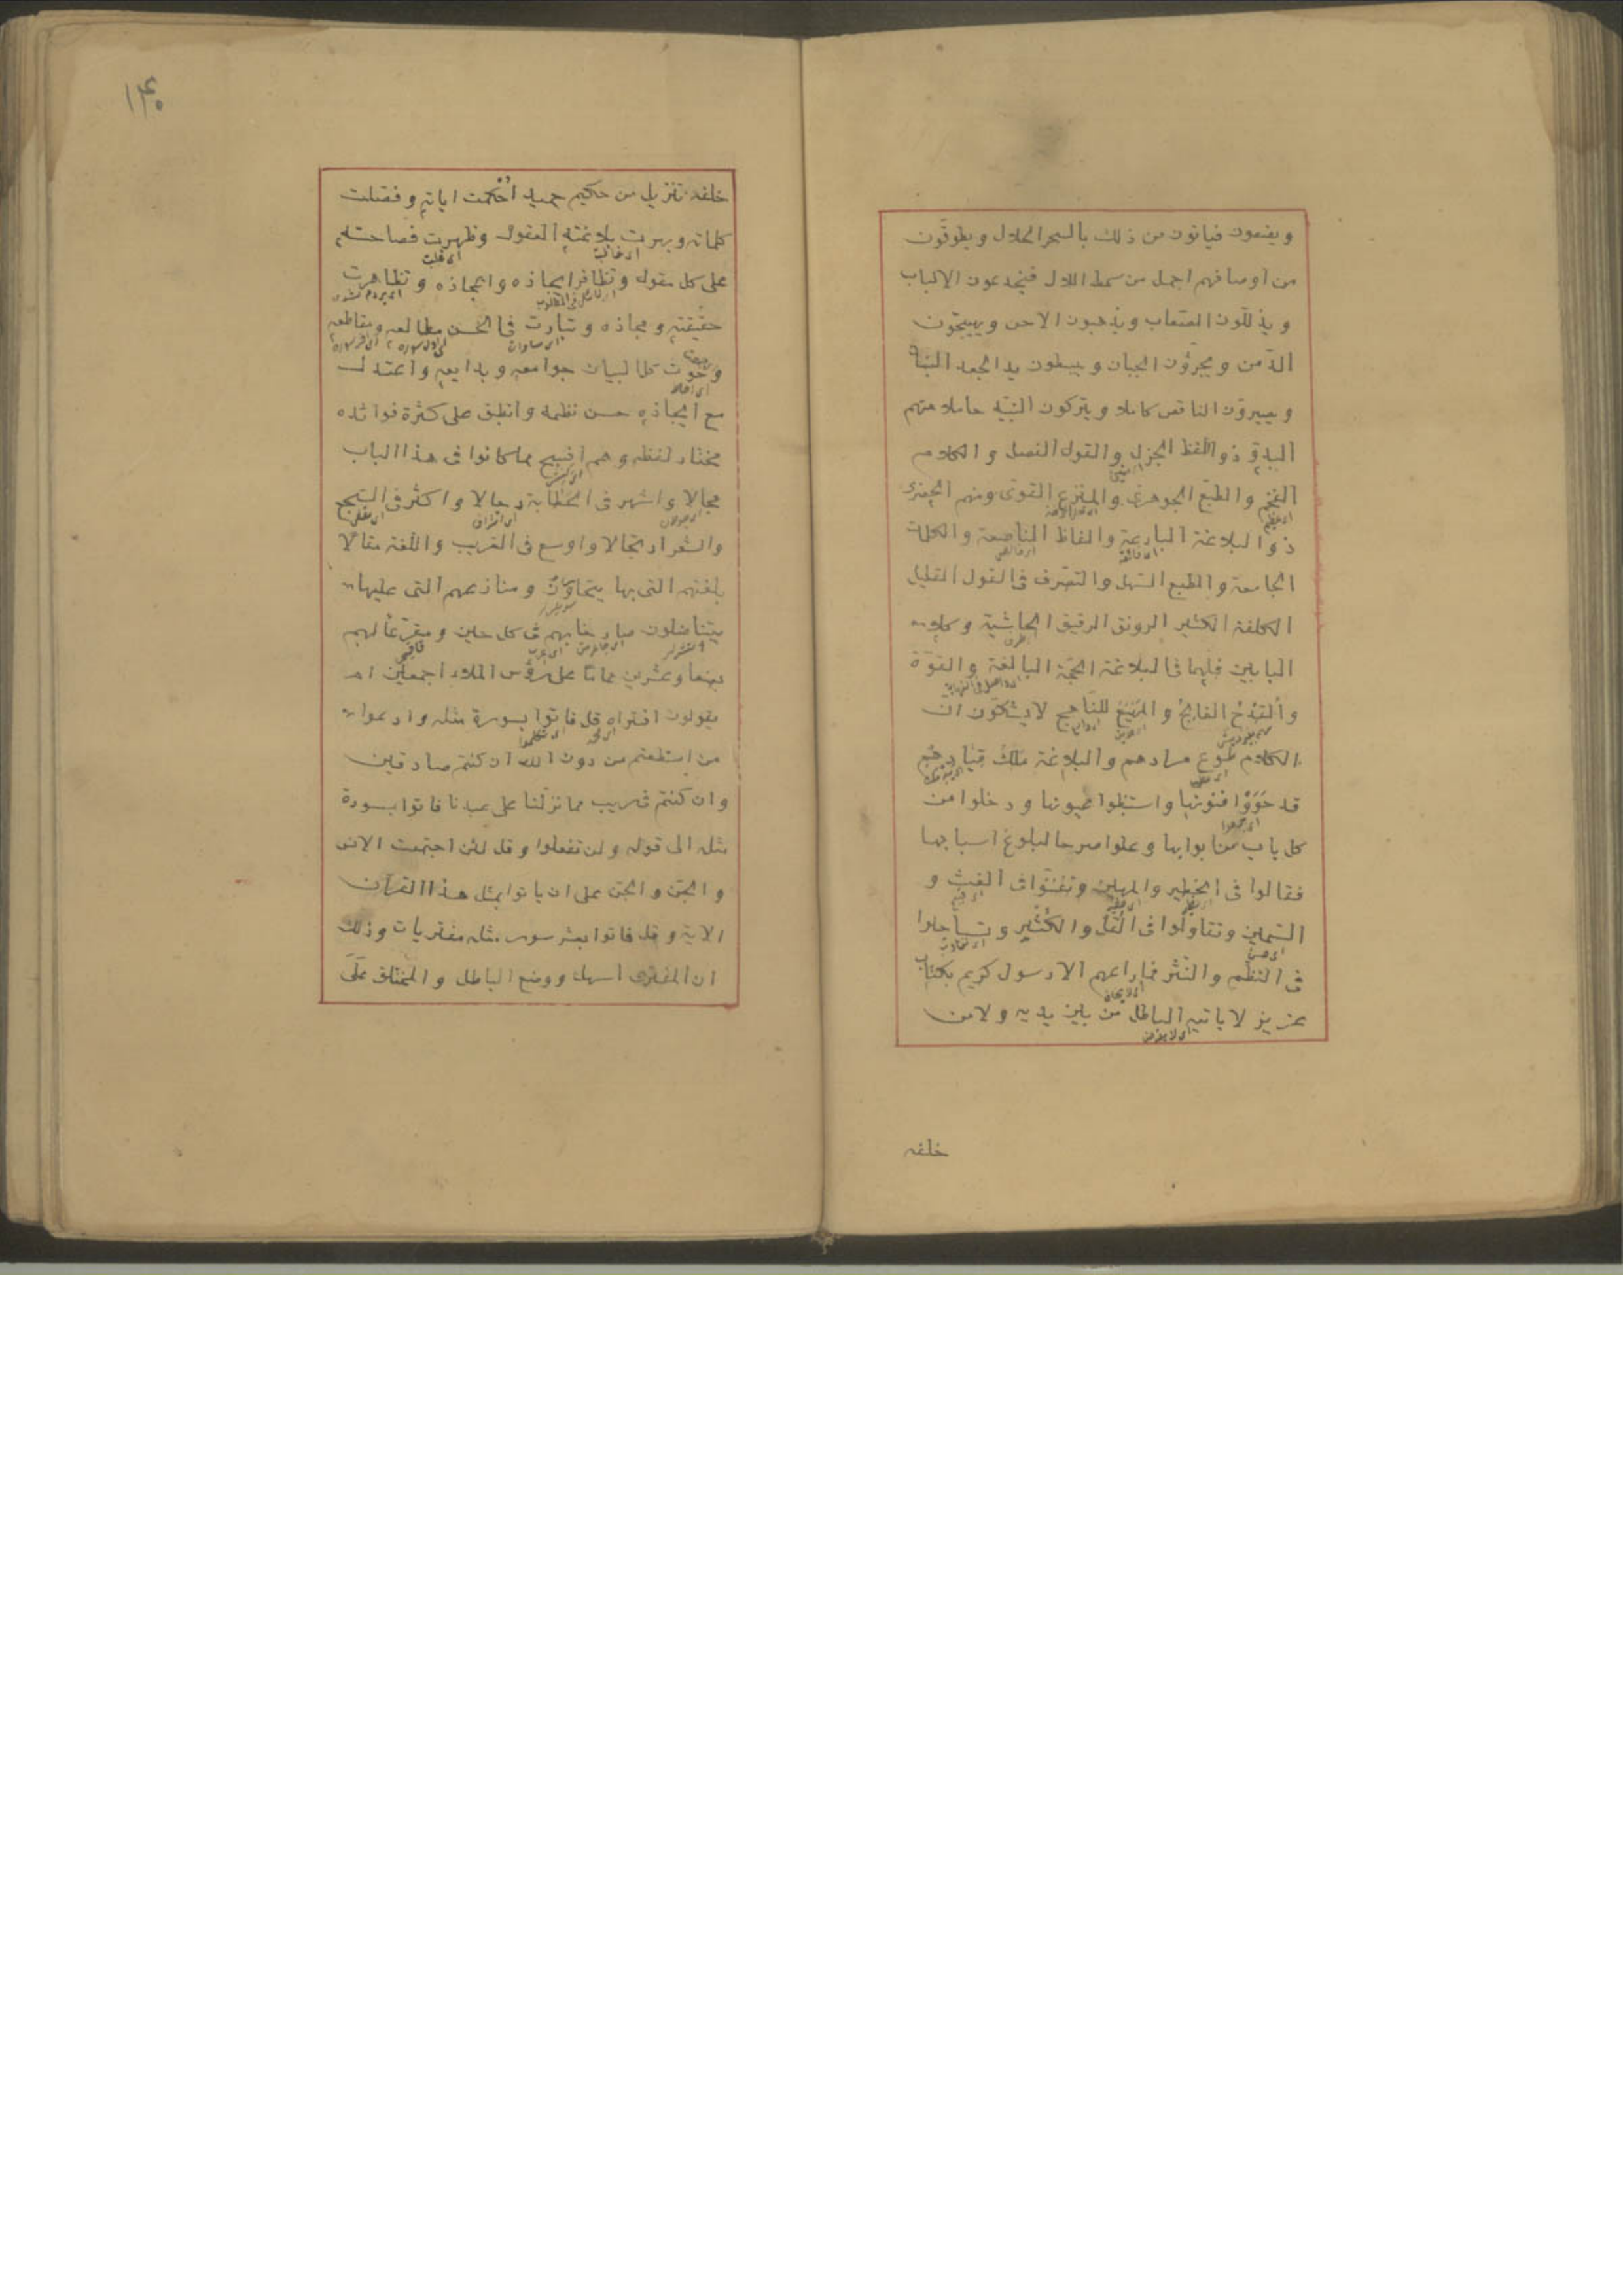 ويضعون فياتون من ذلك بالسحر الحلال ويطوقون
من اوصافهم اجمل من سمط اللال فيخدعون الالباب
ويذللون الصعاب ويذهبون الاحن ويهيجون
الدمن ويجرؤن الجبان ويبسطون يد الجعد البنان
ويصيرون الناقص كاملا ويتركون النبيه خاملا منهم
البدوى ذو اللفظ الجزل والقول الفصل والكلام
الفخم والطبع الجوهرى والمنزع القوى ومنهم الحضرى
ذو البلاغة البارعة والفاظ الناصعة والكلمات
الجامعة والطبع السهل والتصرف فى القول القليل
الكلفة الكثير الرونق الرقيق الحاشية وكلا
البابين فلهما فى البلاغة الحجة البالغة والقوة
والقدح الفالج والمهيع للناهج لا يشكون ان
الكلام طوع مرادهم والبلاغة ملك قيادهم
قد حووا فنونها واستنبطوا عيونها ودخلوا من
كل باب من ابوابها وعلوا صرحا لبلوغ اسبابها
فقالوا فى الخطير والمهين وتفننوا فى الغث و
السمين وتقاولوا فى القل والكثير وتساجلوا
فى النظم والنثر فما راعهم الا رسول كريم بكتاب
عزيز لا ياتيه الباطل من بين يديه ولا من
خلفه
١٤٠
خلفه تنزيل من حكيم حميد احكمت اياته وفصلت
كلماته وبهرت بلاغته العقول وظهرت فصاحته
على كل مقول وتظافر ايجازه واعجازه وتظاهرت
حقيقته ومجازه وتبارت فى الحسن مطالعه ومقاطعه
وحوت كل البيان جوامعه وبدايعه واعتدل
مع ايجازه حسن نظمه وانطبق على كثرة فوائده
مختار لفظه وهم افسح مما كانوا فى هذا الباب
مجالا واشهر فى الخطابة رجالا واكثر فى السجع
والشعر ارتجالا واوسع فى الغريب واللغة مقالا
بلغتهم التى بها يتحاورون ومنازعهم التى عليها
يتناضلون صارخا بهم فى كل حين ومقرعا لهم
بضعا وعشرين عاما على رؤس الملاء اجمعين ام
يقولون افتراه قل فاتوا بسورة مثله وادعوا
من استطعتم من دون الله ان كنتم صادقين
وان كنتم فى ريب مما نزلنا على عبدنا فاتوا بسورة
مثله الى قوله ولن تفعلوا وقل لئن اجتمعت الانس
والجن والجن على ان ياتوا بمثل هذا القرآن
الاية وقل فاتوا بعشر سور مثله مفتريات وذلك
ان المفترى اسهل ووضع الباطل والمختلق على